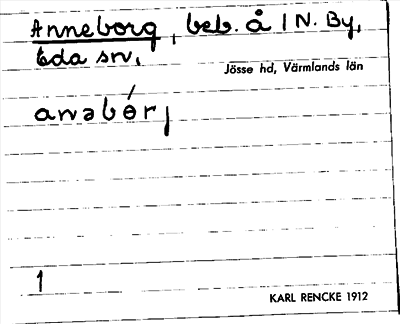 Anneborg, beb. å 1 N. By,
Eda sn,
Jösse hd, Värmlands län
anəbórj
1
KARL RENCKE 1912